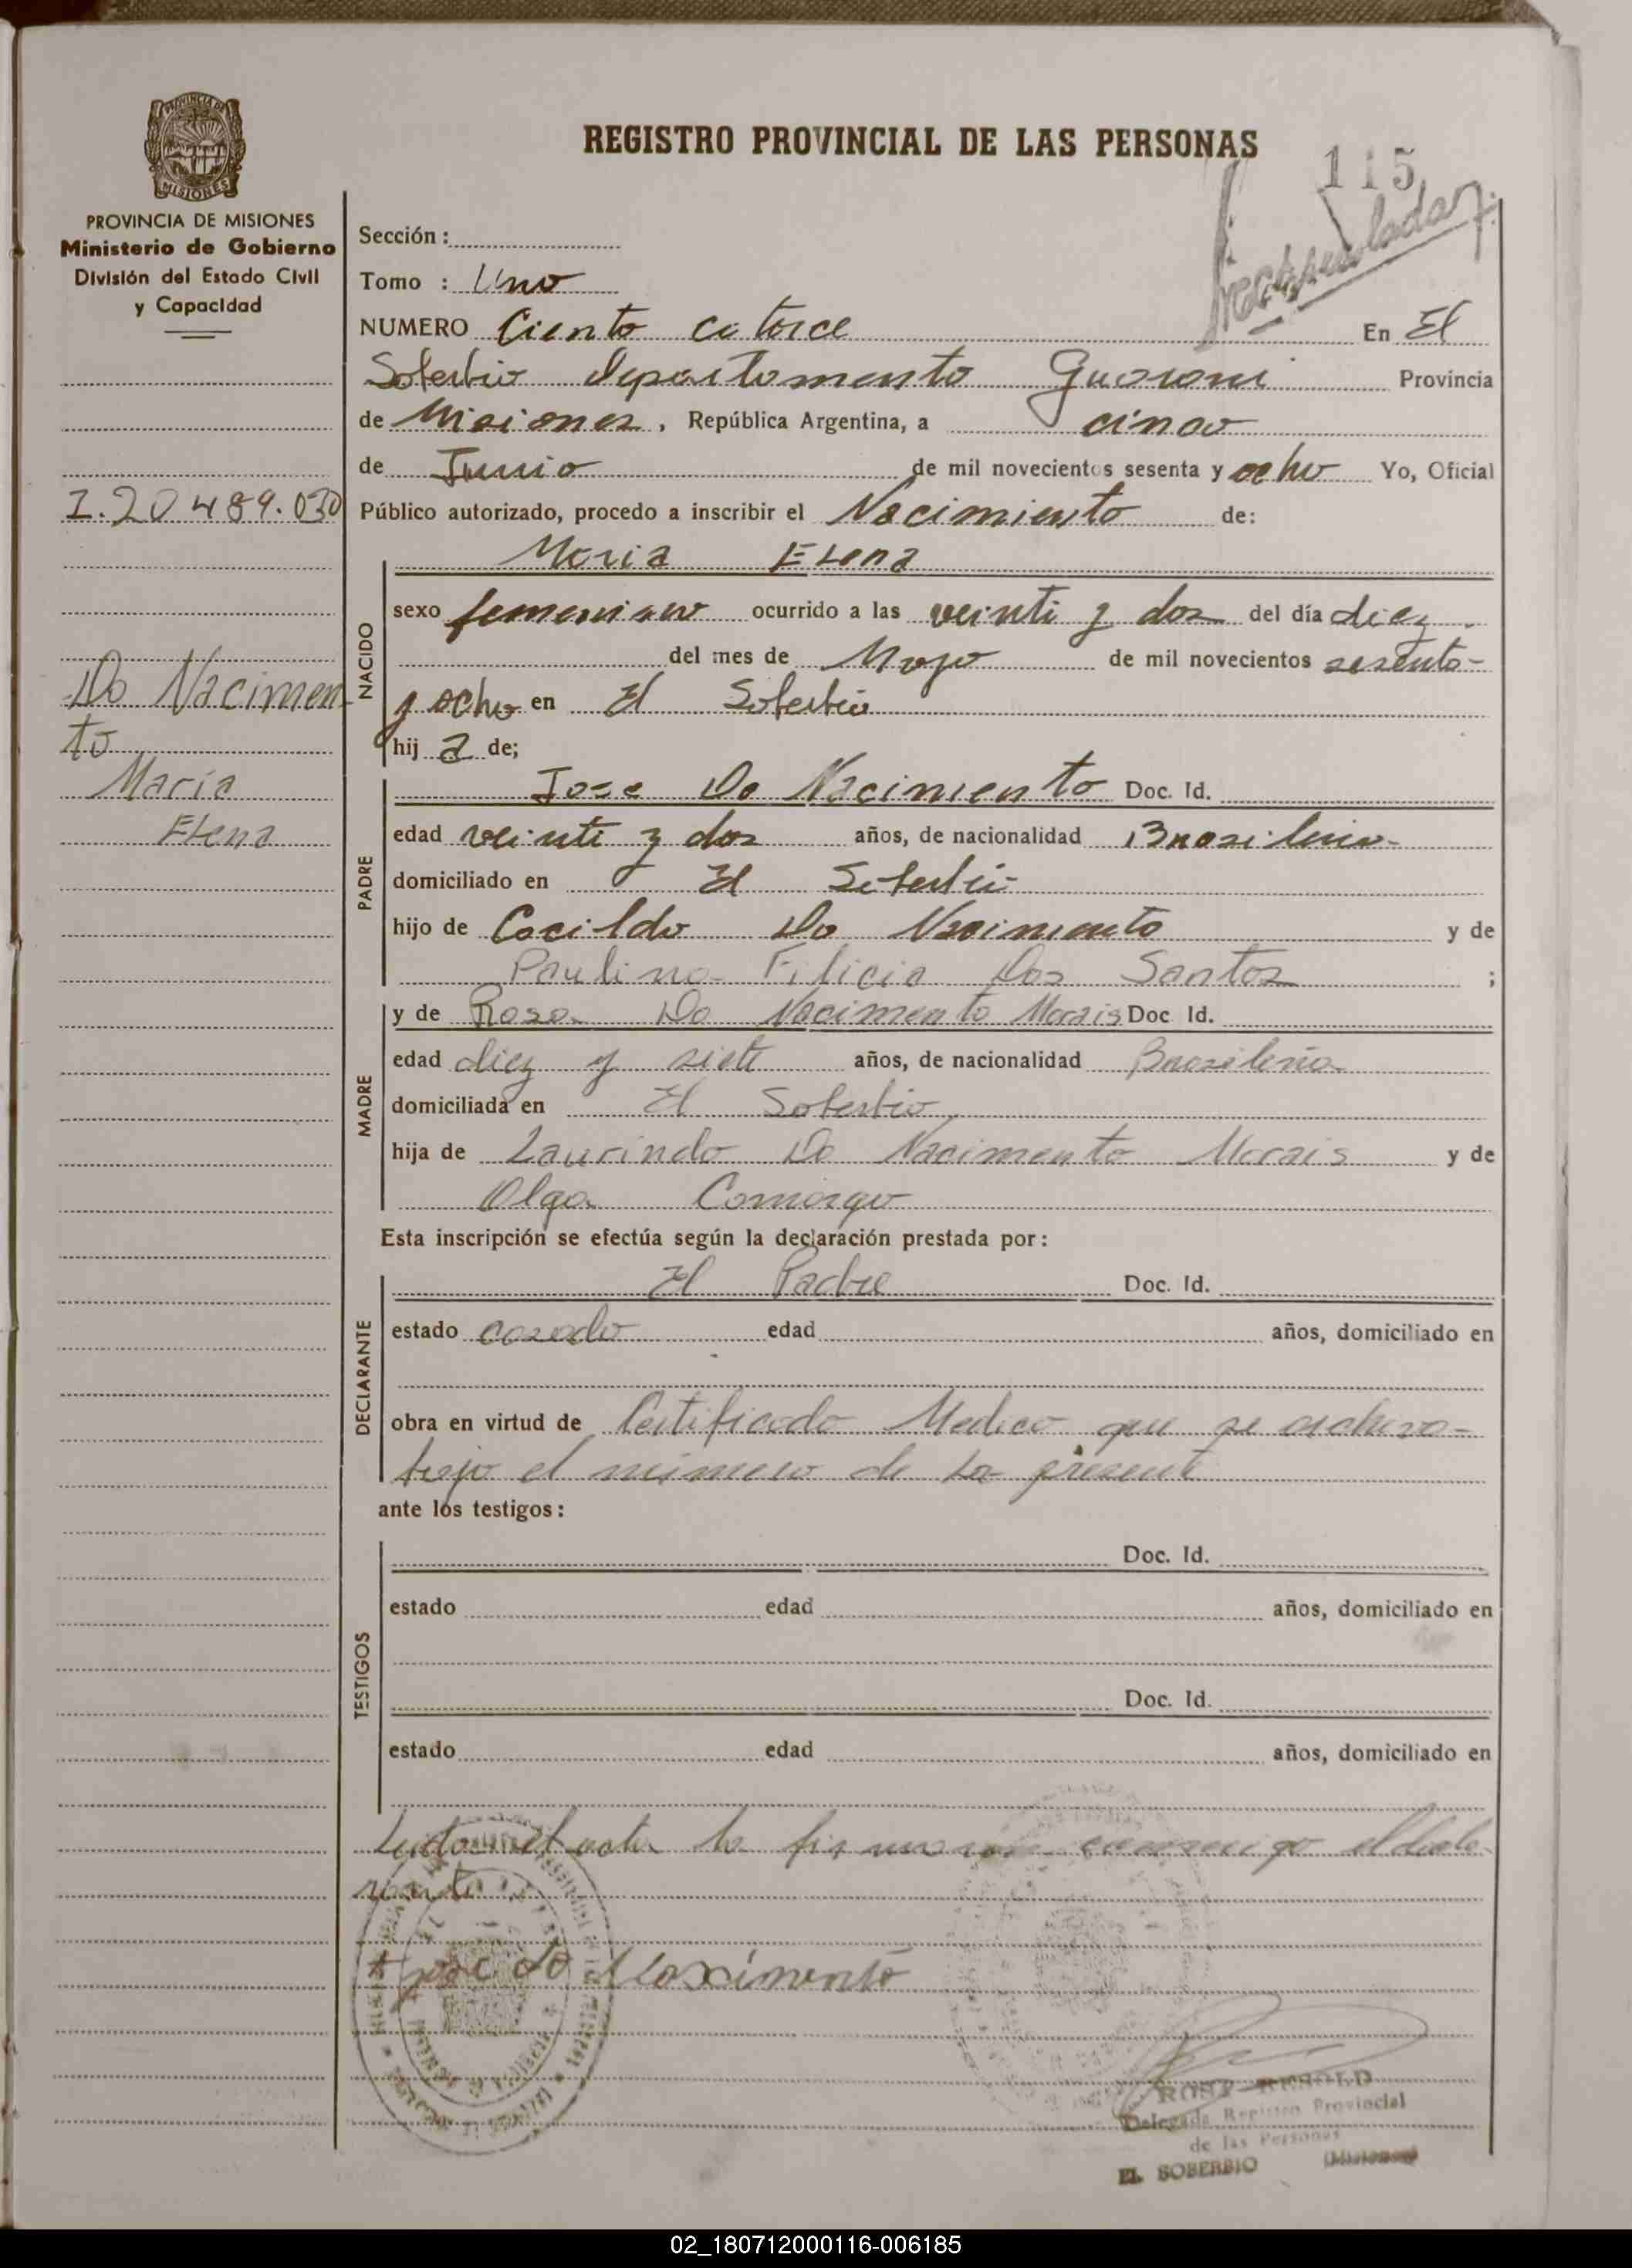 REGISTRO PROVINCIAL DE LAS PERSONAS
115
PROVINCIA DE MISIONES
Ministerio de Gobierno
División del Estado Civil
y Capacidad
I.20489.030
Do Nacimen
to
Maria
Elena
Sección:
Tomo : Uno
NUMERO Ciento catorce En El
Soberbio Departamento Guarani Provincia
de Misiones, República Argentina, a cinco
de Junio de mil novecientos sesenta y ocho Yo, Oficial
Público autorizado, procedo a inscribir el Nacimiento de:
NACIDO
Maria Elena
sexo femenino ocurrido a las veinti y dos del día diez.
del mes de Mayo de mil novecientos sesenta-
y ocho en El Soberbio
hij a de;
PADRE
Jose Do Nacimento Doc. Id.
edad veinti y dos años, de nacionalidad Brasileño-
domiciliado en El Soberbio
hijo de Cacildo Do Nacimento y de
Paulina Filicia Dos Santos ;
MADRE
y de Rosa Do Nacimento Morais Doc Id.
edad diez y siete años, de nacionalidad Brasileña
domiciliada en El Soberbio
hija de Laurindo Do Nacimento Morais y de
Olga Camargo
Esta inscripción se efectúa según la declaración prestada por:
DECLARANTE
El Padre Doc. Id.
estado casado edad años, domiciliado en
obra en virtud de Certificado Medico que se archiva-
bajo el número de la presente
ante los testigos:
TESTIGOS
Doc. Id.
estado edad años, domiciliado en
Doc. Id.
estado edad años, domiciliado en
Leida el acta la firma conmigo el decla-
rante
do
Delegada Registro Provincial
de las Personas
EL SOBERBIO (Misiones)
02_180712000116-006185